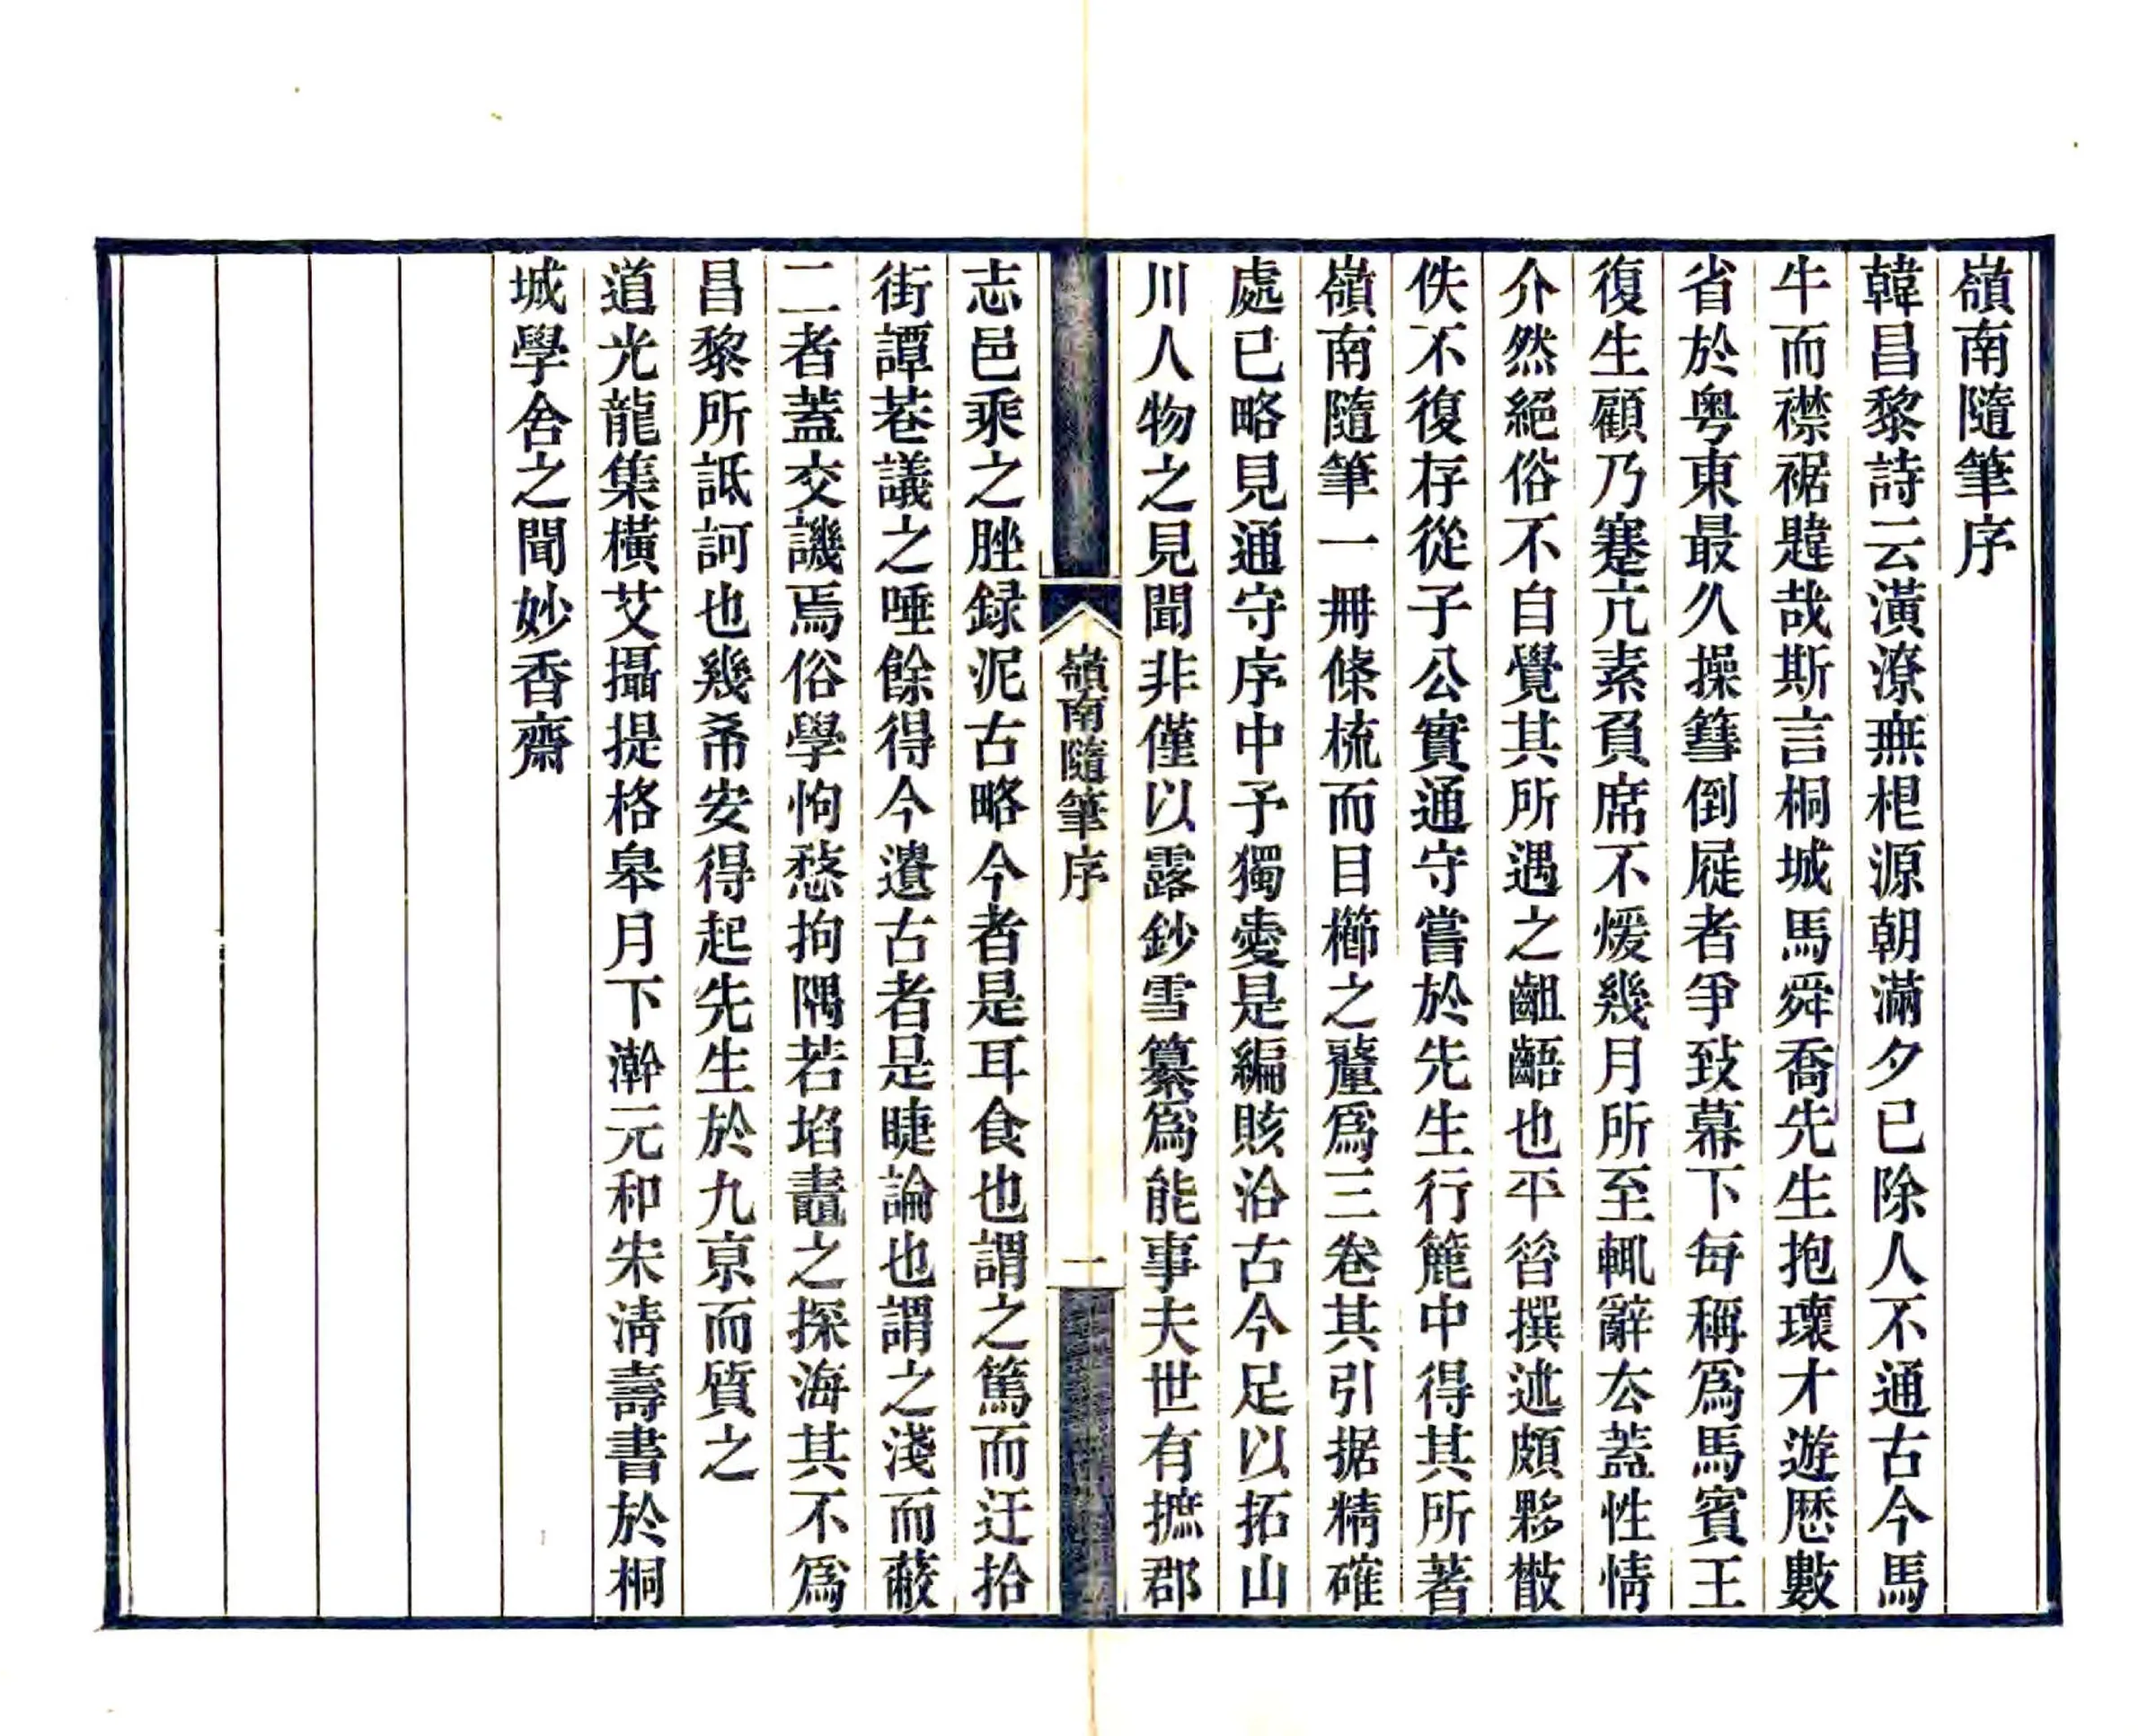 嶺南隨筆序
韓昌黎詩云潢潦無根源朝滿夕已除人不通古今馬
牛而襟裾韙哉斯言桐城馬舜喬先生抱瓌才遊歷數
省於粤東最久操篲倒屣者爭致幕下每稱爲馬賓王
復生顧乃蹇亢素負席不煖幾月所至輒辭厺蓋性情
介然絕俗不自覺其所遇之齟齬也平昝撰述頗夥散
佚不復存從子公實通守嘗於先生行簏中得其所著
嶺南隨筆一冊條梳而目櫛之釐爲三卷其引据精確
處已略見通守序中予獨愛是編賅洽古今足以拓山
川人物之見聞非僅以露鈔雪纂爲能事夫世有摭郡
嶺南隨筆序
一
志邑乘之脞録泥古略今者是耳食也謂之篤而迂拾
街譚巷議之唾餘得今遺古者是睫論也謂之淺而蔽
二者蓋交譏焉俗學怐愗拘隅若埳鼃之探海其不爲
昌黎所詆訶也幾希安得起先生於九亰而質之
道光龍集橫艾攝提格皋月下澣元和宋清壽書於桐
城學舍之聞妙香齋